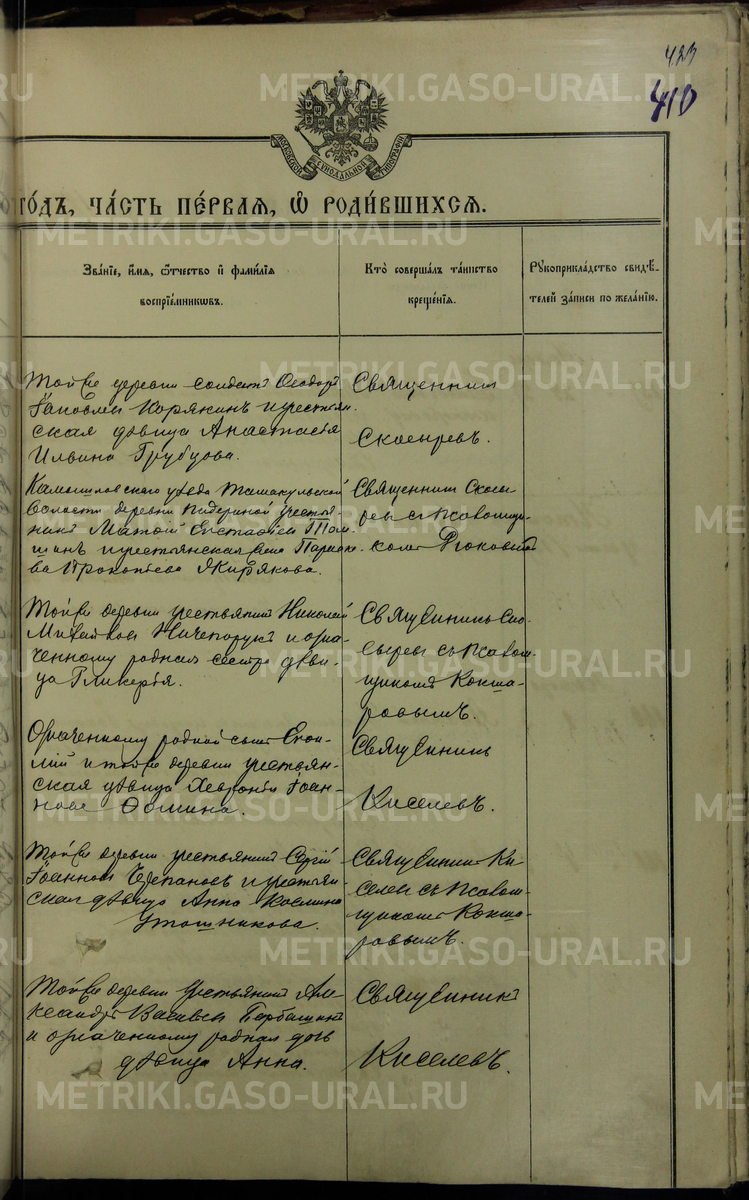 423
410
МОСКОВСКОЙ СѴНОДАЛЬНОЙ ТИПОГРАФІИ
ГО́ДЪ, ЧА́СТЬ ПЕ́РВАЯ, Ѽ РОДИ́ВШИХСЯ.
Зва́ніе, и́мя, ѻ҆́тчество и҆ фами́лія
воспріе́мникωвъ.
Кто̀ соверша́лъ та́инство
креще́нія.
Рꙋкоприкла́дство свидѣ́-
телей за́писи по жела́нію.
Той же деревни солдатъ Ѳеодоръ
Іаковлев Корякинъ и крестьян-
ская дѣвица Анастасія
Ильина Трубцова.
Священник
Скосырев.
Камышловскаго уѣзда
волости деревни крестья-
нин Евстафіев
и крестьянская
ва Прокопіева Якирякова.
Священник Скосы-
рев с псаломщи-
ком
Той же деревни крестьянин Николай
Михайлов Ничепорук и озна-
ченному родная сестра дѣви-
ца Гликерія.
Священник Ско-
сырев с псалом-
щиком Кокша-
ровым.
Означенному родной сын
и той же деревни крестьян-
ская дѣвица Хевронія Іоан-
нова Ѳомина.
Священник
Киселев.
Той же деревни крестьянин Сергій
Іоаннов Черепанов и крестьян
ская дѣвица Анна Космина
Утошникова.
Священник Ки-
селев с псалом-
щиком Кокша-
ровым.
Той же деревни крестьянин Але-
ксандр Васильев
и означенному родная дочь
дѣвица Анна.
Священник
Киселев.
METRIKI.GASO-URAL.RU